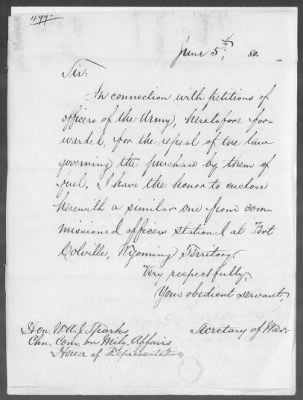 June 5th, 80.
Sir:
In connection with petitions of
officers of the Army, heretofore for-
warded, for the repeal of the law
governing the purchase by them of
fuel, I have the honor to enclose
herewith a similar one from com-
missioned officers stationed at Fort
Colville, Wyoming Territory.
Very respectfully,
Your obedient servant,
Secretary of War.
Hon. W. A. J. Sparks
Chn. Com. on Mily. Affairs
House of Representatives